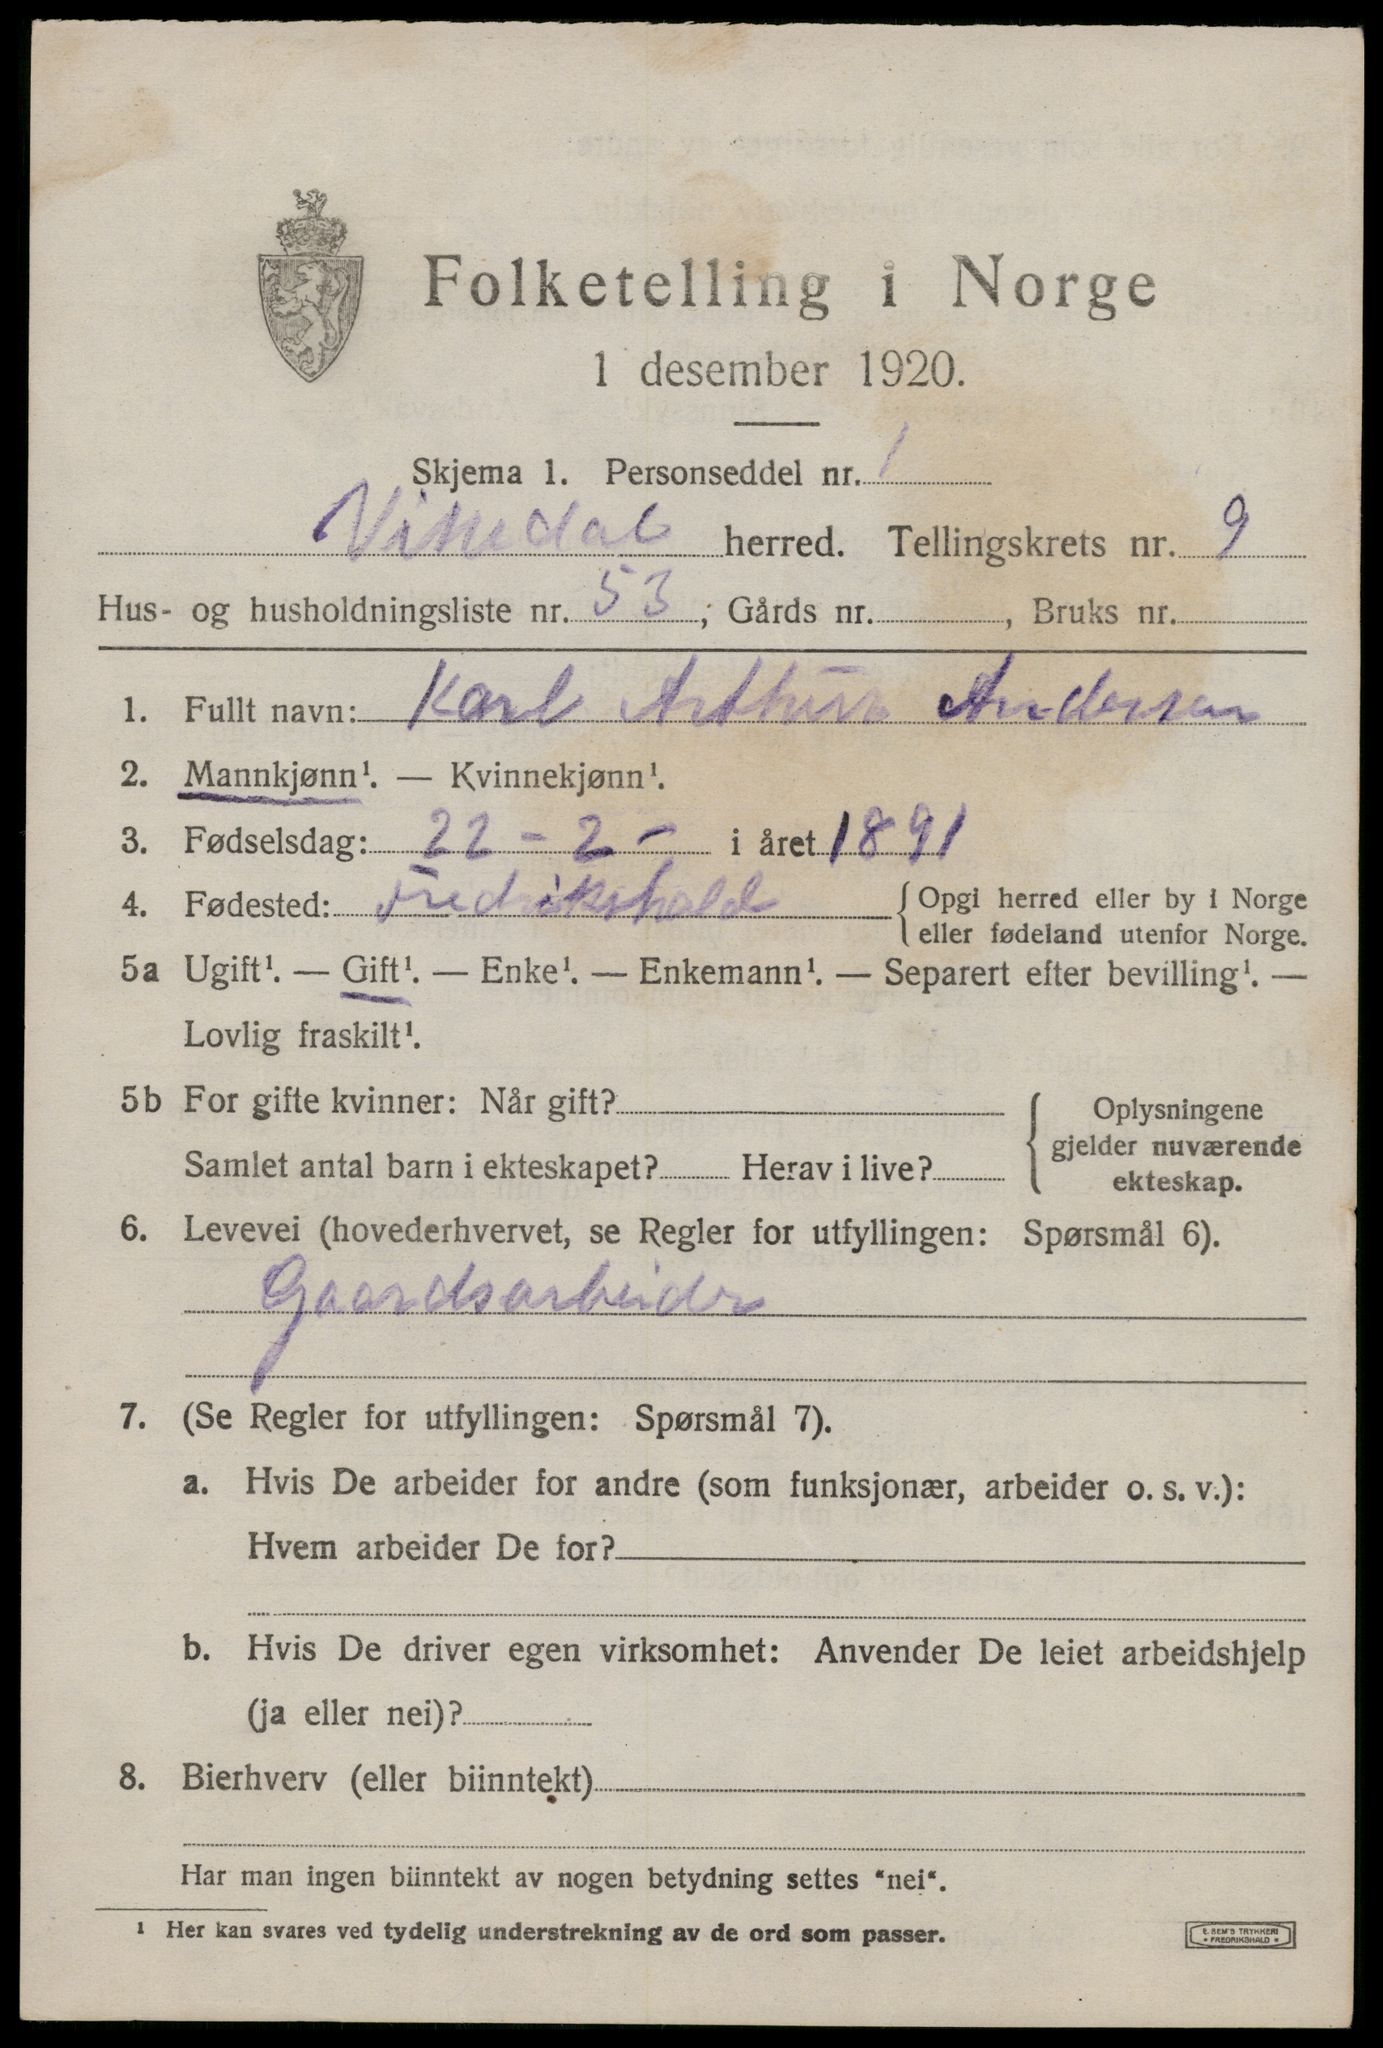 Folketelling i Norge
1 desember 1920.
Skjema 1. Personseddel nr. 1
herred. Tellingskrets nr. 9
Hus- og husholdningsliste nr. 53; Gårds nr. , Bruks nr.
1. Fullt navn: Karl Arthur Andersen
2. Mannkjønn¹. — Kvinnekjønn¹.
3. Fødselsdag: 22 - 2 - i året 1891
4. Fødested: Fredrikshald { Opgi herred eller by i Norge
eller fødeland utenfor Norge.
5a Ugift¹. — Gift¹. — Enke¹. — Enkemann¹. — Separert efter bevilling¹. —
Lovlig fraskilt¹.
5b For gifte kvinner: Når gift? { Oplysningene
gjelder nuværende
Samlet antal barn i ekteskapet? Herav i live?
ekteskap.
6. Levevei (hovederhvervet, se Regler for utfyllingen: Spørsmål 6).
Gaardsarbeider
7. (Se Regler for utfyllingen: Spørsmål 7).
a. Hvis De arbeider for andre (som funksjonær, arbeider o. s. v.):
Hvem arbeider De for?
b. Hvis De driver egen virksomhet: Anvender De leiet arbeidshjelp
(ja eller nei)?
8. Bierhverv (eller biinntekt)
Har man ingen biinntekt av nogen betydning settes "nei".
¹ Her kan svares ved tydelig understrekning av de ord som passer.
E. SEM'S TRYKKERI
* FREDRIKSHALD *